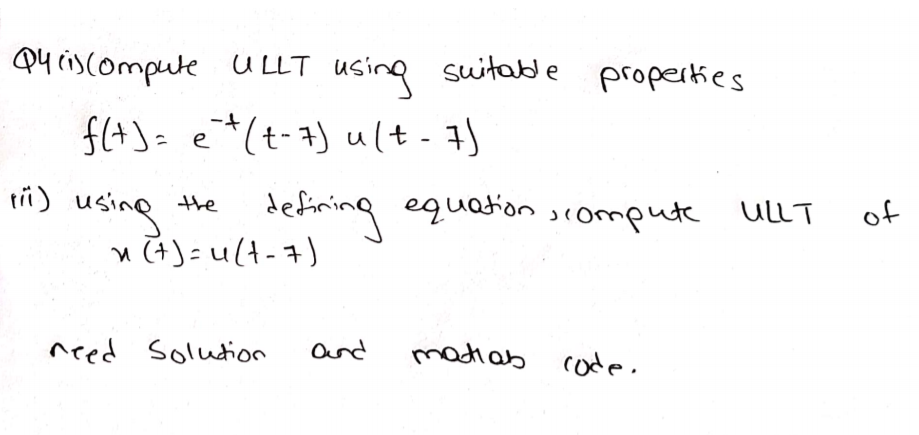 Q4 (i) Compute ULLT using suitable properties
f(t) = e^-t (t-7) u(t-7)
(ii) using the defining equation, compute ULLT of
x(t) = u(t-7)
need Solution and matlab code.